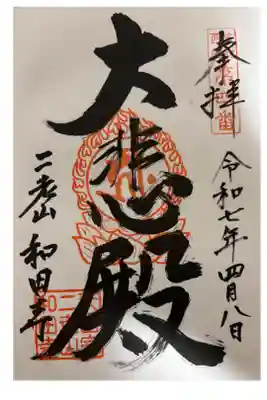 奉拝
令和七年四月八日
大悲殿
二老山 和田寺